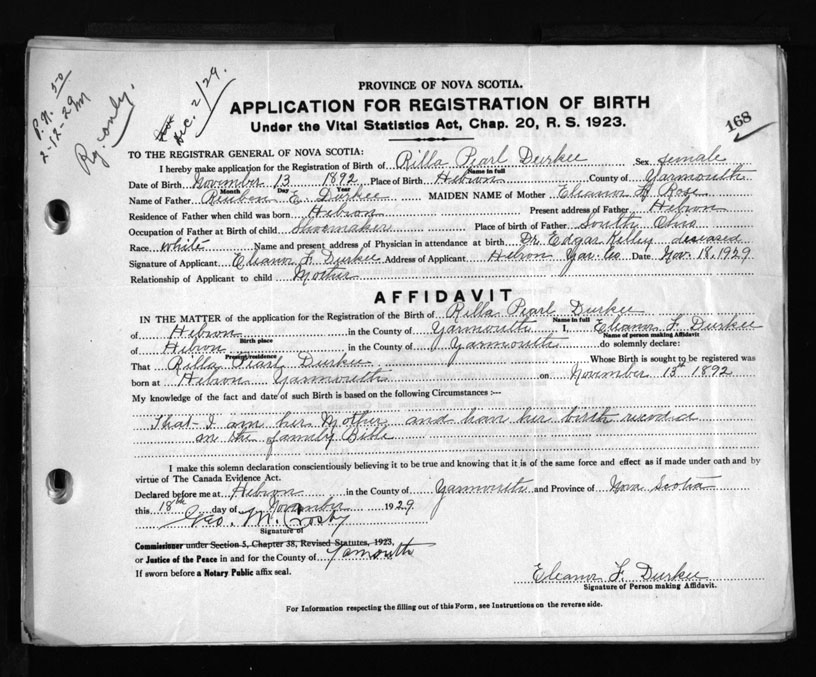 P.N. 50
2-12-29 M
Reg. only.
Dec. 2/29.
168
PROVINCE OF NOVA SCOTIA.
APPLICATION FOR REGISTRATION OF BIRTH
Under the Vital Statistics Act, Chap. 20, R. S. 1923.
TO THE REGISTRAR GENERAL OF NOVA SCOTIA:
I hereby make application for the Registration of Birth of Rilla Pearl Durkee Sex female
Name in full
Date of Birth November 13 1892 Place of Birth Hebron County of Yarmouth
Month Day Year
Name of Father Reuben E. Durkee MAIDEN NAME of Mother Eleanor Rose
Residence of Father when child was born Hebron Present address of Father Hebron
Occupation of Father at Birth of child Shoemaker Place of birth of Father South Ohio
Race White Name and present address of Physician in attendance at birth Dr. Edgar Kelley deceased
Signature of Applicant Eleanor F. Durkee Address of Applicant Hebron Yar. Co Date Nov. 18, 1929
Relationship of Applicant to child Mother
AFFIDAVIT
IN THE MATTER of the application for the Registration of the Birth of Rilla Pearl Durkee
Name in full
of Hebron in the County of Yarmouth I, Eleanor F. Durkee
Birth place Name of person making Affidavit
of Hebron in the County of Yarmouth do solemnly declare:
Present residence
That Rilla Pearl Durkee Whose Birth is sought to be registered was
born at Hebron Yarmouth on November 13th 1892
My knowledge of the fact and date of such Birth is based on the following Circumstances :--
That I am her Mother and have her birth recorded
in the family Bible
I make this solemn declaration conscientiously believing it to be true and knowing that it is of the same force and effect as if made under oath and by
virtue of The Canada Evidence Act.
Declared before me at Hebron in the County of Yarmouth and Province of Nova Scotia
this 18th day of November 1929
Geo. M. Crosby
Signature of
Commissioner under Section 5, Chapter 38, Revised Statutes, 1923,
or Justice of the Peace in and for the County of Yarmouth
If sworn before a Notary Public affix seal.
Eleanor F. Durkee
Signature of Person making Affidavit.
For Information respecting the filling out of this Form, see Instructions on the reverse side.